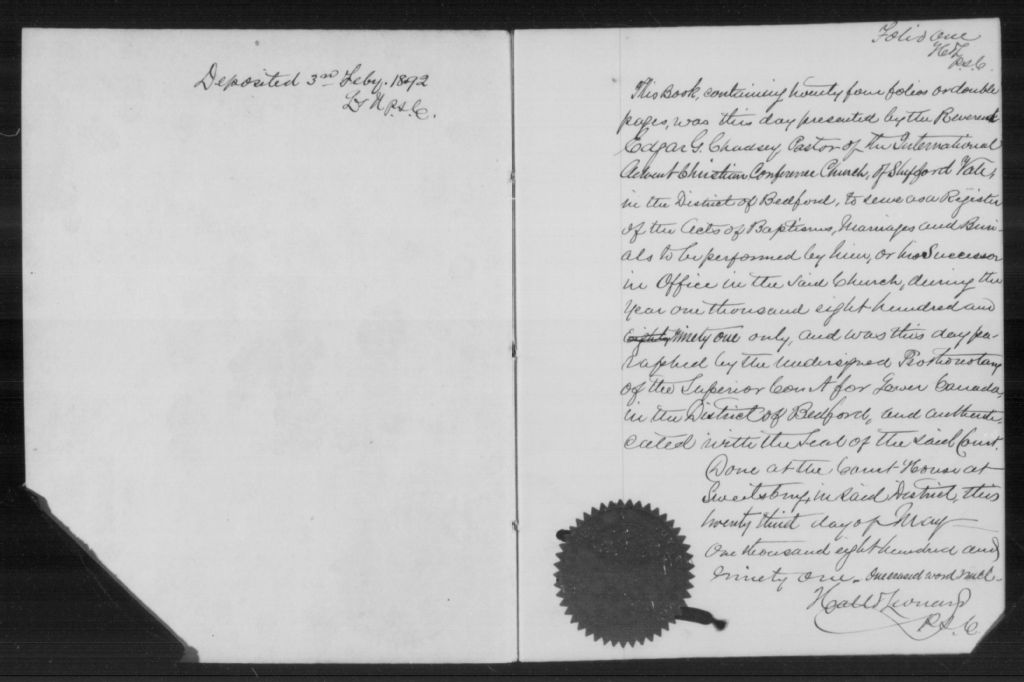 Deposited 3rd Feby. 1892
P.S.C.
Folio One
H&L
P.S.C.
This Book, containing twenty four folios or double
pages, was this day presented by the Reverend
Edgar G. Chadsey Pastor of the International
Advent Christian Conference Church, of Shefford Vale,
in the District of Bedford, to serve as a Register
of the Acts of Baptisms, Marriages and Buri-
als to be performed by him, or his Successor
in Office in the said Church, during the
Year one thousand eight hundred and
eighty ninety one only, and was this day pa-
raphed by the undersigned Prothonotary
of the Superior Court for Lower Canada,
in the District of Bedford, and authenti-
cated with the Seal of the said Court.
Done at the Court House at
Sweetsburg, in said District, this
twenty third day of May
One thousand eight hundred and
ninety one. One erased word null.
Hall & Leonard
P.S.C.